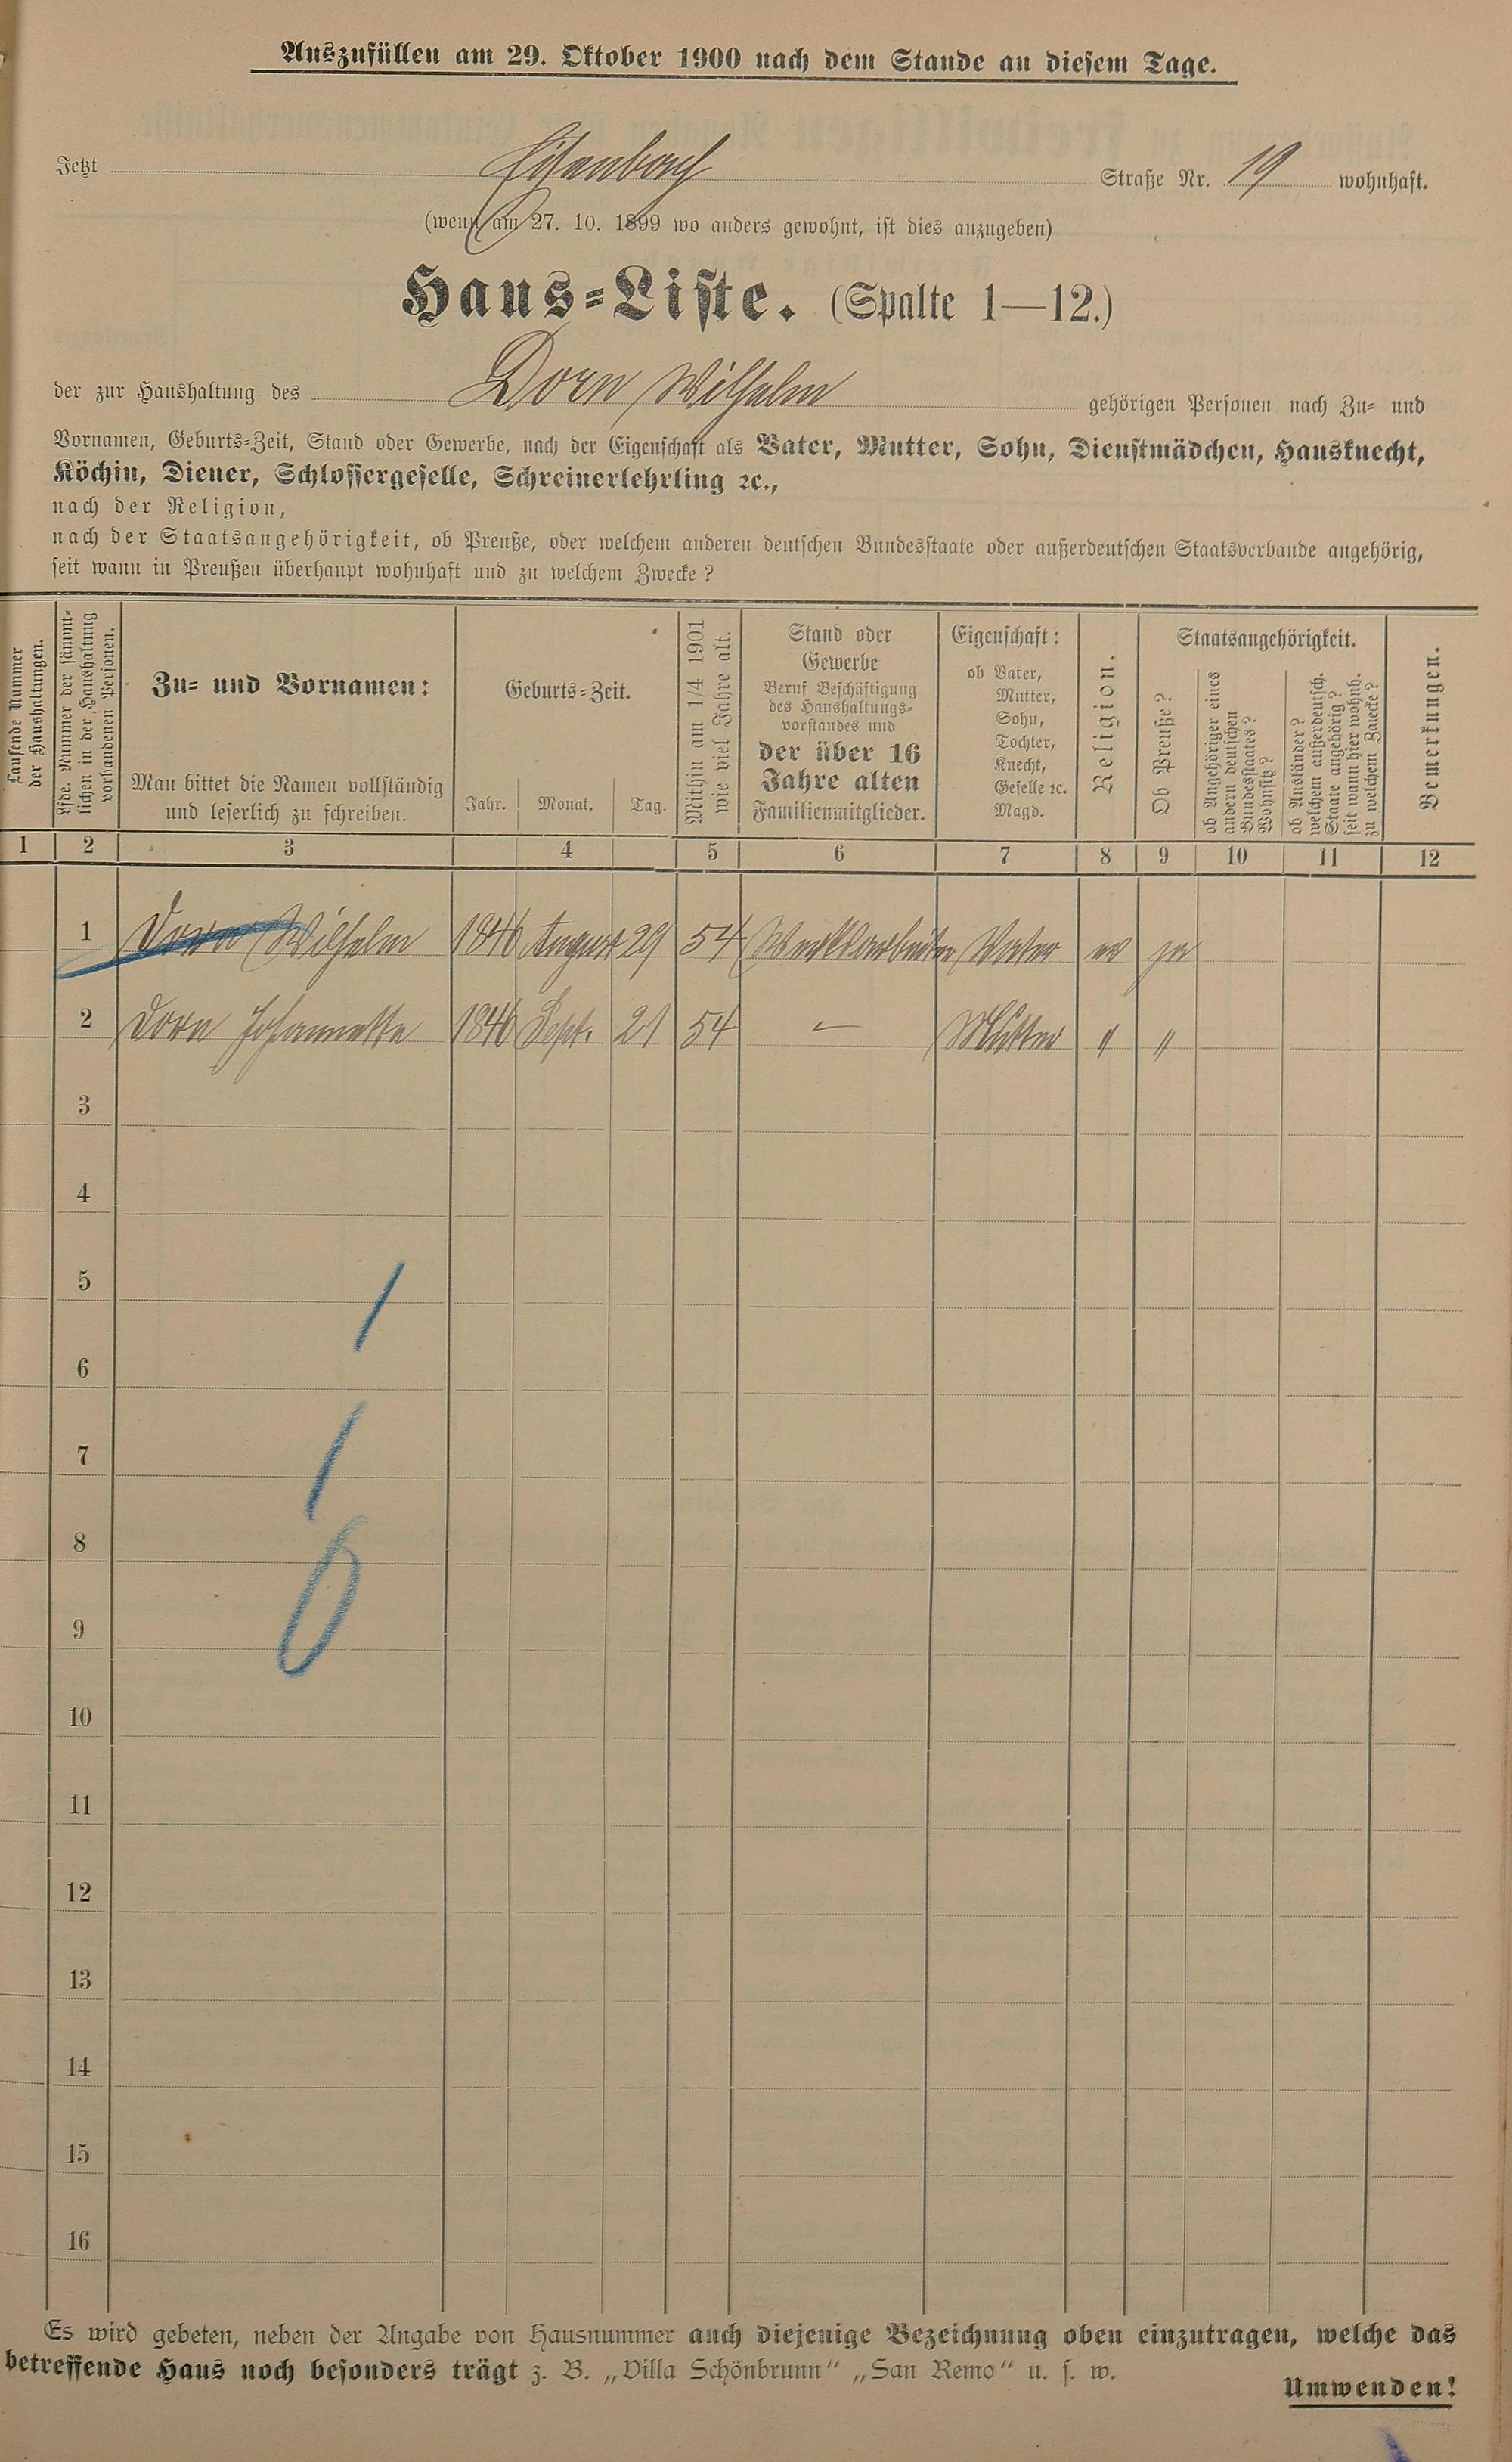 Auszufüllen am 29. Oktober 1900 nach dem Stande an diesem Tage.
Jetzt Eisenbach Straße Nr. 19 wohnhaft.
(wenn am 27. 10. 1899 wo anders gewohnt, ist dies anzugeben)
Haus=Liste. (Spalte 1—12.)
der zur Haushaltung des Dorn Wilhelm gehörigen Personen nach Zu= und
Vornamen, Geburts=Zeit, Stand oder Gewerbe, nach der Eigenschaft als Vater, Mutter, Sohn, Dienstmädchen, Hausknecht,
Köchin, Diener, Schlossergeselle, Schreinerlehrling ꝛc.,
nach der Religion,
nach der Staatsangehörigkeit, ob Preuße, oder welchem anderen deutschen Bundesstaate oder außerdeutschen Staatsverbande angehörig,
seit wann in Preußen überhaupt wohnhaft und zu welchem Zwecke?
Laufende Nummer
der Haushaltungen.
Lfde. Nummer der sämmt=
lichen in der Haushaltung
vorhandenen Personen.
Zu= und Vornamen:
Man bittet die Namen vollständig
und leserlich zu schreiben.
Geburts=Zeit.
Jahr. Monat. Tag.
Mithin am 1/4 1901
wie viel Jahre alt.
Stand oder
Gewerbe
Beruf Beschäftigung
des Haushaltungs=
vorstandes und
der über 16
Jahre alten
Familienmitglieder.
Eigenschaft:
ob Vater,
Mutter,
Sohn,
Tochter,
Knecht,
Geselle ꝛc.
Magd.
Religion.
Staatsangehörigkeit.
Ob Preuße?
ob Angehöriger eines
andern deutschen
Bundesstaates?
Wohnsitz?
ob Ausländer?
welchem außerdeutsch.
Staate angehörig?
seit wann hier wohnh.
zu welchem Zwecke?
Bemerkungen.
1 2 3 4 5 6 7 8 9 10 11 12
1 Dorn Wilhelm 1846 August 29 54 Vater ev ja
2 Dorn Johannette 1846 Sept. 21 54 — Mutter " "
3
4
5
6
7
8
9
10
11
12
13
14
15
16
1
1
0
Es wird gebeten, neben der Angabe von Hausnummer auch diejenige Bezeichnung oben einzutragen, welche das
betreffende Haus noch besonders trägt z. B. „Villa Schönbrunn“ „San Remo“ u. s. w.
Umwenden!